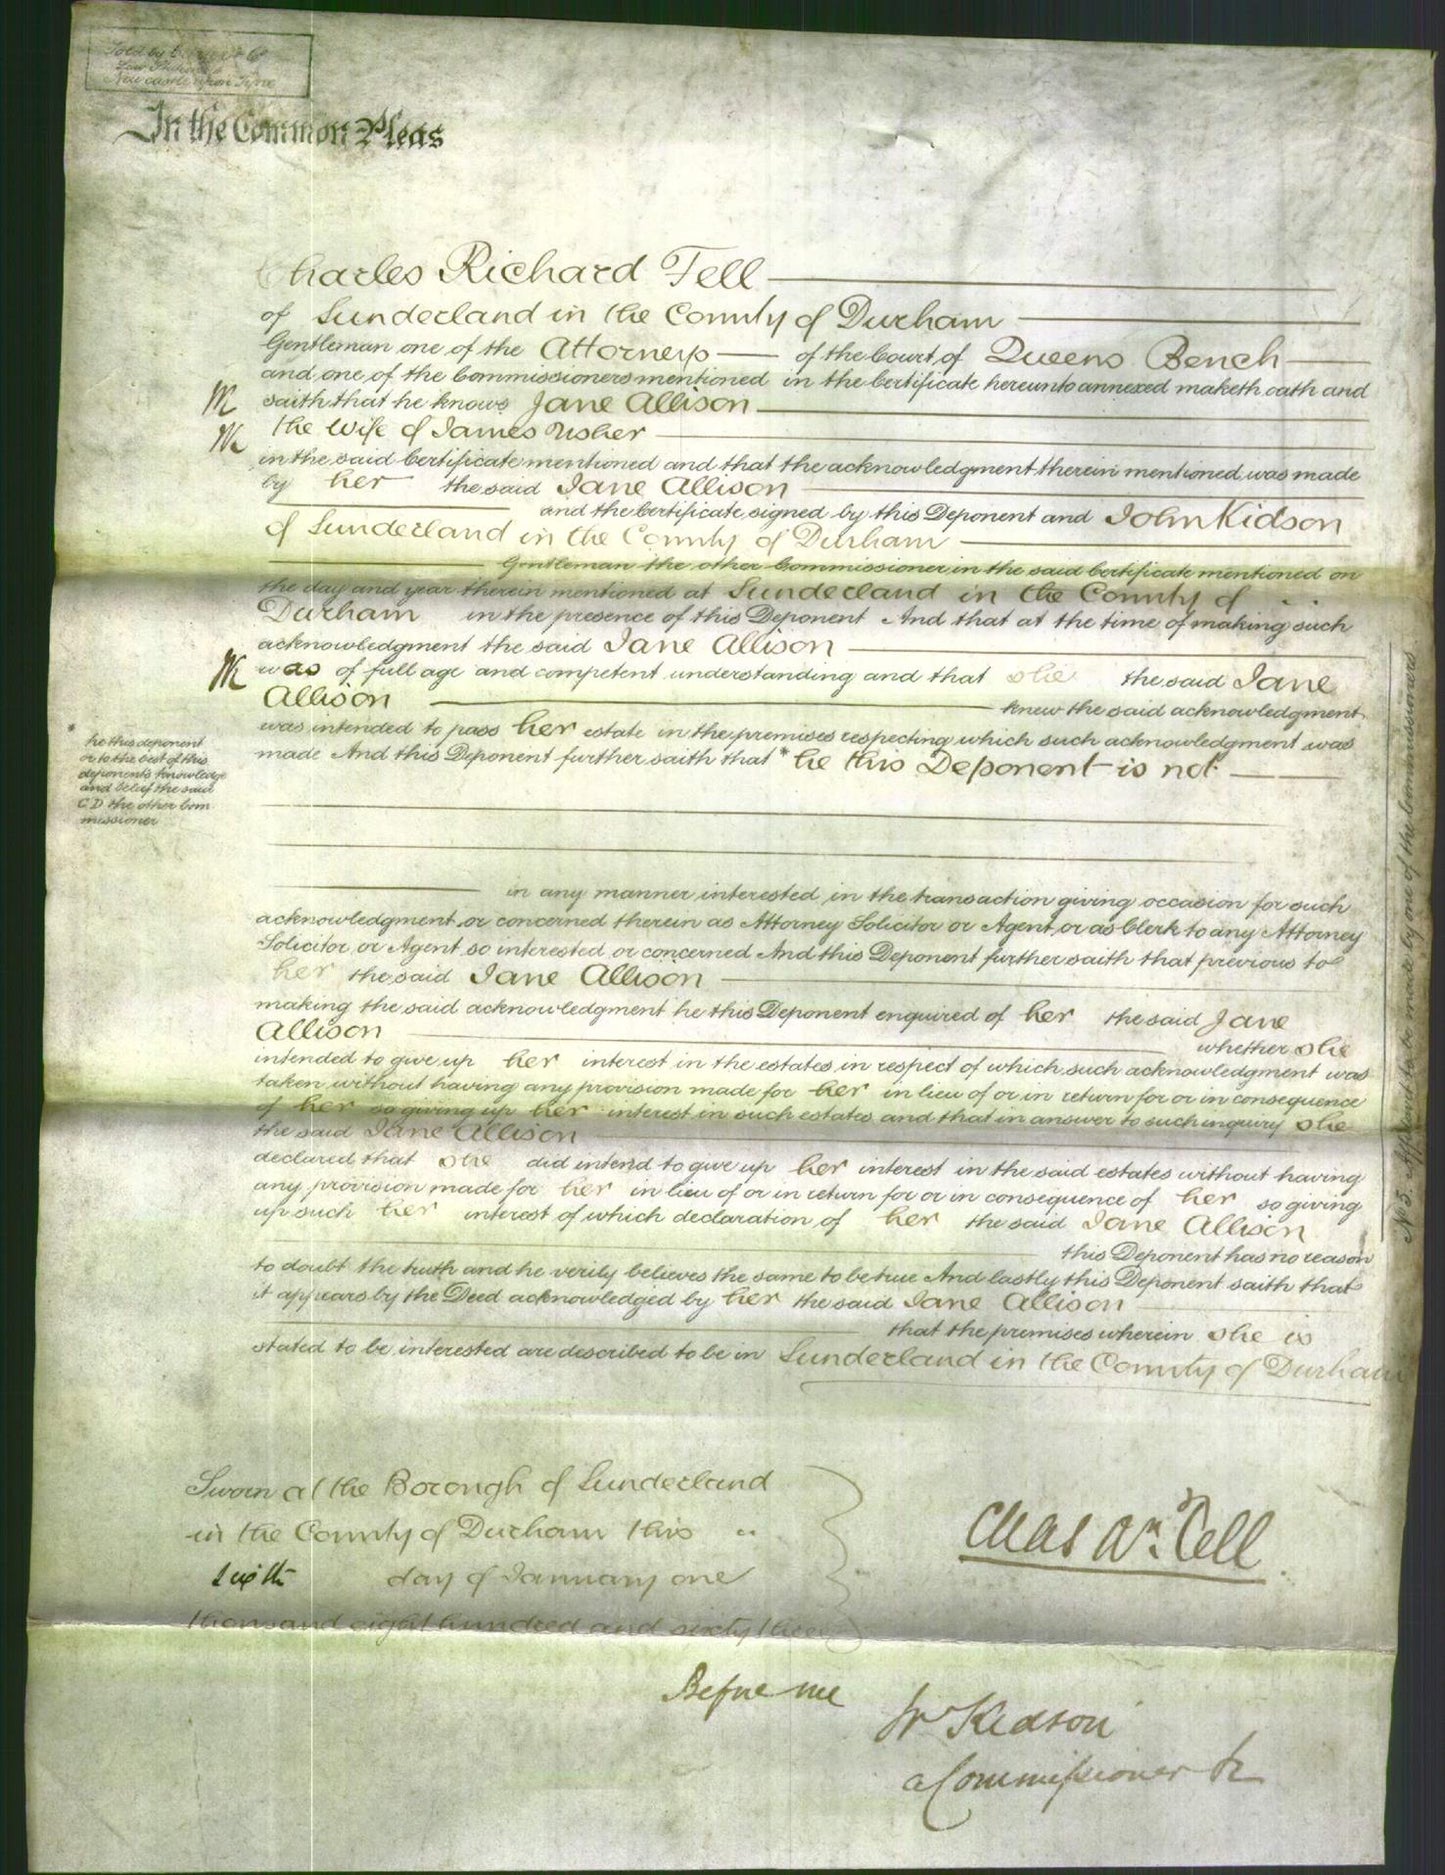 Sold by
Law Stationers
Newcastle upon Tyne
In the Common Pleas
Charles Richard Fell
of Sunderland in the County of Durham
Gentleman one of the Attorneys of the Court of Queens Bench
and one of the Commissioners mentioned in the Certificate hereunto annexed maketh oath and
saith that he knows Jane Allison
the Wife of James Usher
in the said Certificate mentioned and that the acknowledgment therein mentioned was made
by her the said Jane Allison
and the Certificate signed by this Deponent and John Kidson
of Sunderland in the County of Durham
Gentleman the other Commissioner in the said Certificate mentioned on
the day and year therein mentioned at Sunderland in the County of
Durham in the presence of this Deponent And that at the time of making such
acknowledgment the said Jane Allison
was of full age and competent understanding and that she the said Jane
Allison knew the said acknowledgment
was intended to pass her estate in the premises respecting which such acknowledgment was
made And this Deponent further saith that * he this Deponent is not
* he this deponent
or to the best of this
deponents knowledge
and belief the said
C D the other Com
missioner
in any manner interested in the transaction giving occasion for such
acknowledgment or concerned therein as Attorney Solicitor or Agent or as Clerk to any Attorney
Solicitor or Agent so interested or concerned And this Deponent further saith that previous to
her the said Jane Allison
making the said acknowledgment he this Deponent enquired of her the said Jane
Allison whether she
intended to give up her interest in the estates in respect of which such acknowledgment was
taken without having any provision made for her in lieu of or in return for or in consequence
of her so giving up her interest in such estates and that in answer to such inquiry she
the said Jane Allison
declared that she did intend to give up her interest in the said estates without having
any provision made for her in lieu of or in return for or in consequence of her so giving
up such her interest of which declaration of her the said Jane Allison
this Deponent has no reason
to doubt the truth and he verily believes the same to be true And lastly this Deponent saith that
it appears by the Deed acknowledged by her the said Jane Allison
that the premises wherein she is
stated to be interested are described to be in Sunderland in the County of Durham
No 5. Affidavit to be made by one of the Commissioners
Sworn at the Borough of Sunderland
in the County of Durham this
sixth day of January one
thousand eight hundred and sixty three
Before me
Kidson
a Commissioner &c